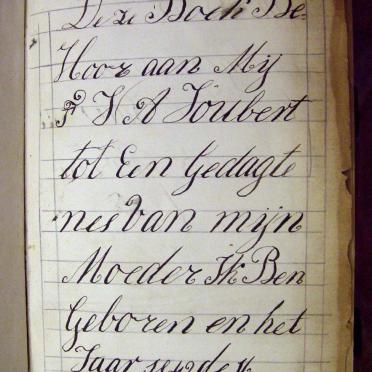 Deze Boek Be-
Hoor aan Mij
Joubert
tot Een Gedagte
nes Van mijn
Moeder Ik Ben
Geboren en het
Jaar de